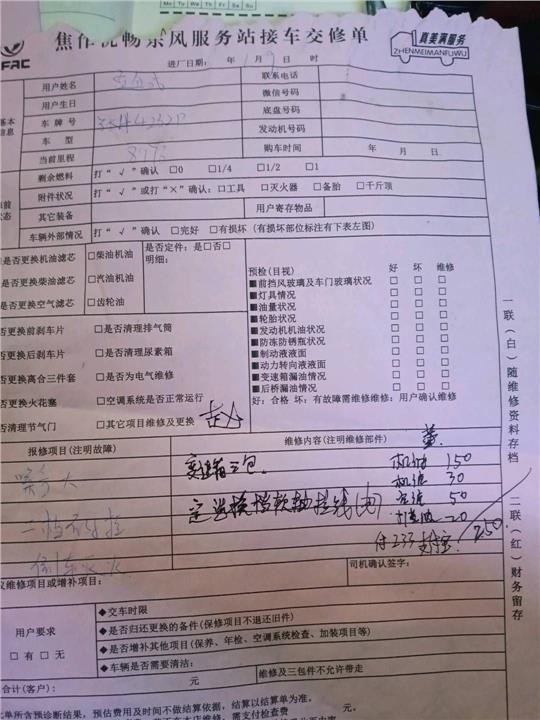 Mo Tu We Th Fr Sa Su
焦作优畅东风服务站接车交修单
真美满服务
ZHENMEIMANFUWU
FAC
进厂日期: 年 1月 9日 时
基本信息
用户姓名
联系电话
用户生日
微信号码
车牌号
底盘号码
车型
发动机号码
当前里程 8773
购车时间 年 月 日
剩余燃料 打“√”确认 □0 □1/4 □1/2 □1
附件状况 打“√”或打“×”确认: □工具 □灭火器 □备胎 □千斤顶
其它装备
用户寄存物品
车辆外部情况 打“√”确认 □完好 □有损坏 (有损坏部位标注有下表左图)
是否更换机油滤芯 □柴油机油
是否定件: 是□否□
明细:
是否更换柴油滤芯 □汽油机油
是否更换空气滤芯 □齿轮油
是否更换前刹车片 □是否清理排气筒
是否更换后刹车片 □是否清理尿素箱
是否更换离合三件套 □是否为电气维修
是否更换火花塞 □空调系统是否正常运行
是否清理节气门 □其它项目维修及更换
预检(目视) 好 坏 维修
■前挡风玻璃及车门玻璃状况 □ □ □
■灯具情况 □ □ □
■油量状况 □ □ □
■轮胎状况 □ □ □
■发动机机油状况 □ □ □
■防冻防锈瓶状况 □ □ □
■制动液液面 □ □ □
■动力转向液液面 □ □ □
■变速箱漏油情况 □ □ □
■后桥漏油情况 □ □ □
好: 合格 坏: 有故障需维修维修: 用户确认维修
报修项目(注明故障)
维修内容(注明维修部件)
变速箱三包.
机油 150
机滤 30
空滤 50
20
250
付233 支付宝
司机确认签字:
建议维修项目或增补项目:
用户要求
□有 □无
◆交车时限
◆是否归还更换的备件(保修项目不退还旧件)
◆是否增补其他项目(保养、年检、空调系统检查、加装项目等)
◆车辆是否需要清洁:
维修及三包件不允许带走
合计(客户): 元
元
此单所含预诊断结果, 预估费用及时间不做结算依据, 结算以结算单为准。
一联(白)随维修资料存档
二联(红)财务留存